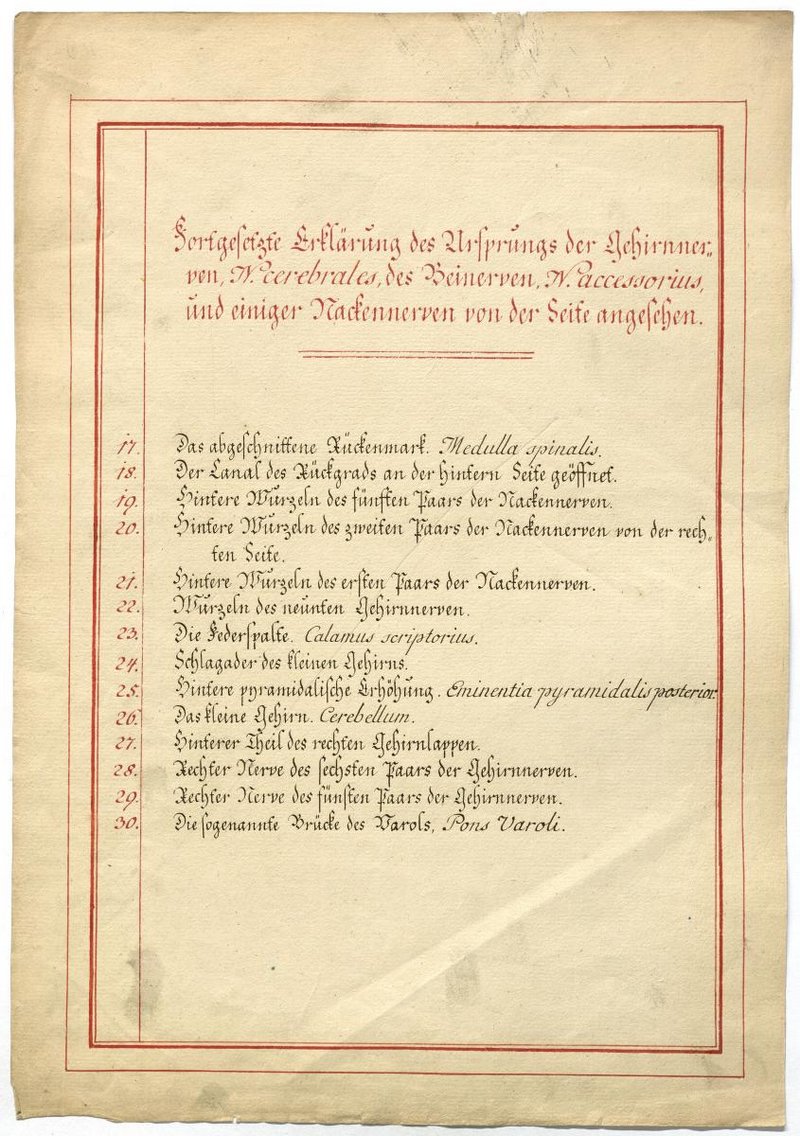 Fortgesetzte Erklärung des Ursprungs der Gehirnner„
ven, N. cerebrales, des Beinerven, N. accessorius,
und einiger Nackennerven von der Seite angesehen.
17. Das abgeschnittene Rückenmark. Medulla spinalis.
18. Der Canal des Rückgrads an der hintern Seite geöffnet.
19. Hintere Wurzeln des fünften Paars der Nackennerven.
20. Hintere Wurzeln des zweiten Paars der Nackennerven von der rech„
ten Seite.
21. Hintere Wurzeln des ersten Paars der Nackennerven.
22. Wurzeln des neunten Gehirnnerven.
23. Die Federspalte. Calamus scriptorius.
24. Schlagader des kleinen Gehirns.
25. Hintere pyramidalische Erhöhung. Eminentia pyramidalis posterior.
26. Das kleine Gehirn. Cerebellum.
27. Hinterer Theil des rechten Gehirnlappen.
28. Rechter Nerve des sechsten Paars der Gehirnnerven.
29. Rechter Nerve des fünften Paars der Gehirnnerven.
30. Die sogenannte Brücke des Varols, Pons Varoli.